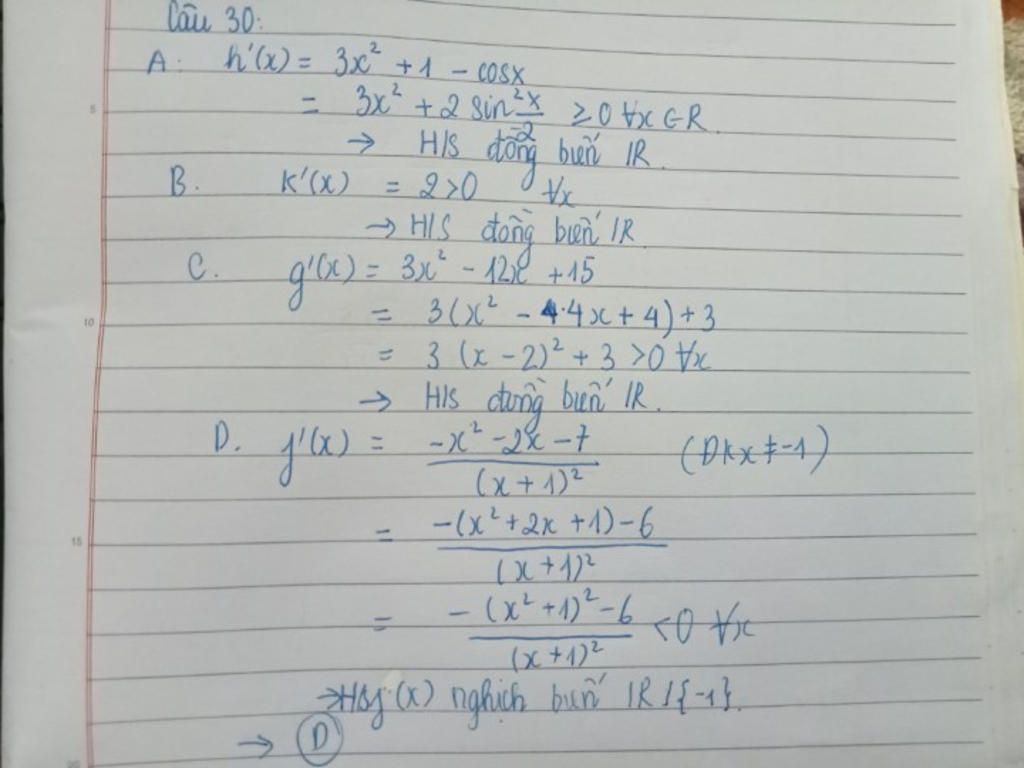 Câu 30:
A: h'(x) = 3x² + 1 - cosx
= 3x² + 2 sin² x/2 ≥ 0 ∀x ∈ R
→ H/S đồng biến IR.
B. K'(x) = 2>0 ∀x
→ H/S đồng biến IR
C. g'(x) = 3x² - 12x + 15
= 3(x² - 4.4x + 4) + 3
= 3 (x - 2)² + 3 >0 ∀x
→ H/S đồng biến IR.
D. j'(x) = (-x² - 2x - 7)/(x + 1)² (Đk x ≠ -1)
= (-(x² + 2x + 1) - 6)/(x + 1)²
= (-(x² + 1)² - 6)/(x + 1)² <0 ∀x
→ HS j(x) nghịch biến IR / {-1}.
→ D
5
10
15
20